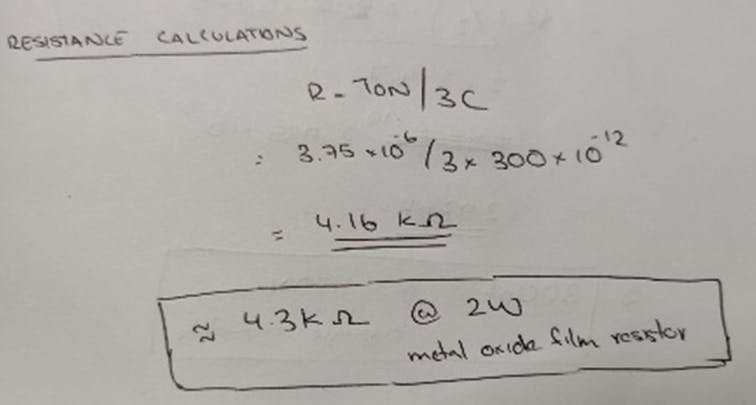 RESISTANCE CALCULATIONS
R = TON/3C
= 3.75 × 10⁻⁶ / 3 × 300 × 10⁻¹²
= 4.16 kΩ
≈ 4.3kΩ @ 2W
metal oxide film resistor